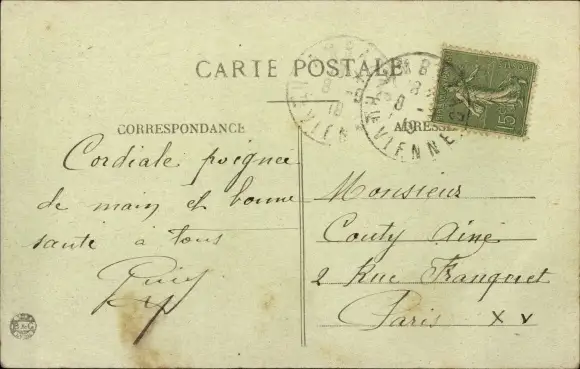 CARTE POSTALE
CORRESPONDANCE
ADRESSE
Cordiale poignée
de main et bonne
santé à tous
Monsieur
Couty Ainé
2 Rue Franquet
Paris XV
15